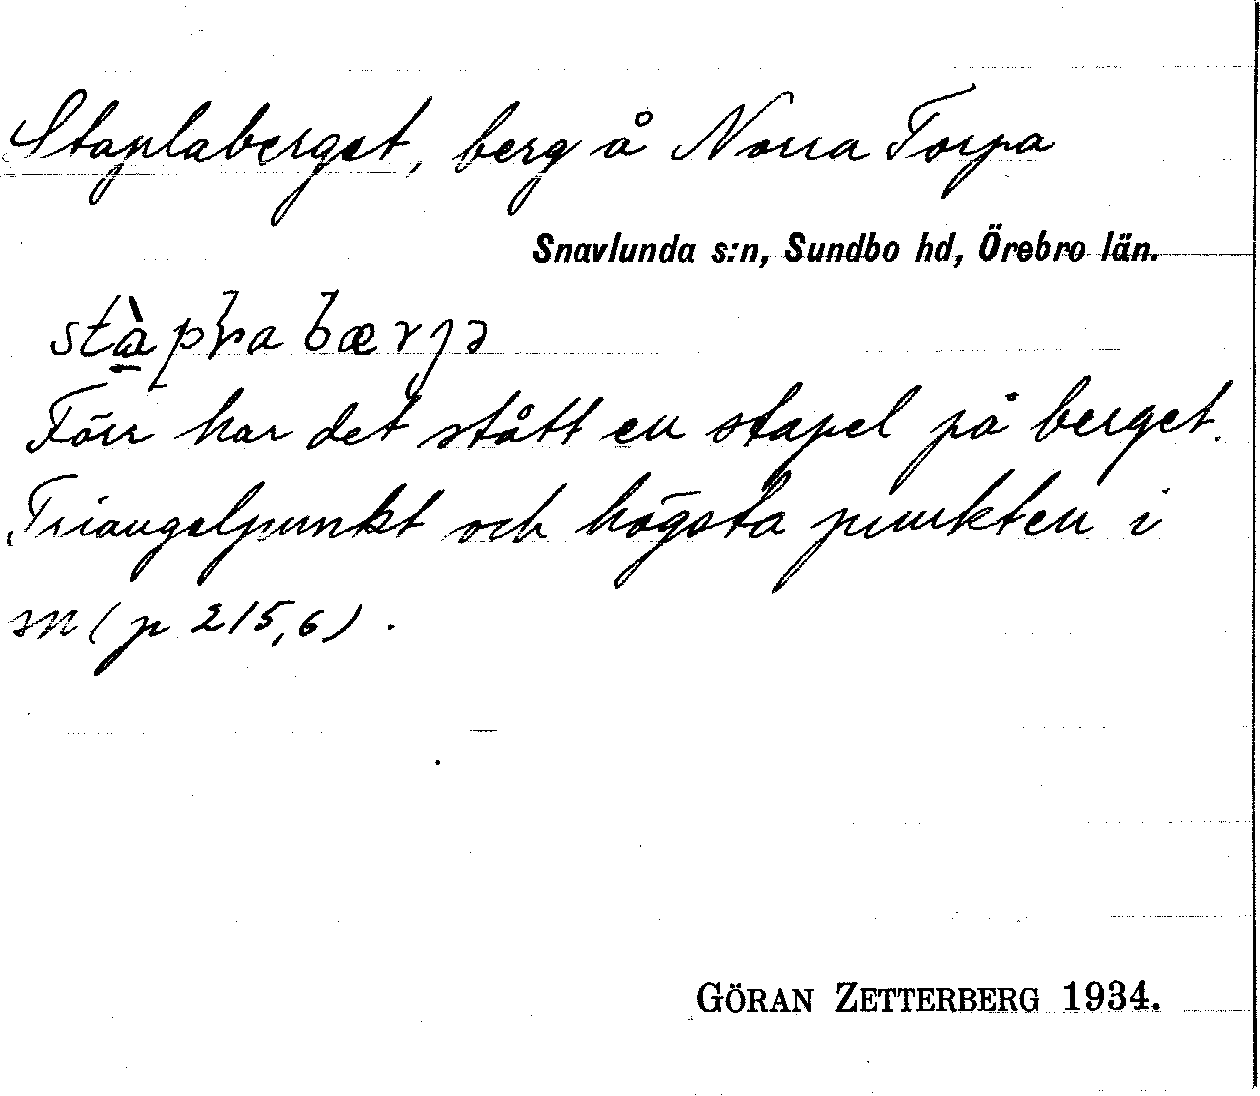 Staplaberget, berg å Norra Torpa
Snavlunda s:n, Sundbo hd, Örebro län.
Förr har det stått en stapel på berget.
Triangelpunkt och högsta punkten i
sn (p 215,6).
GÖRAN ZETTERBERG 1934.